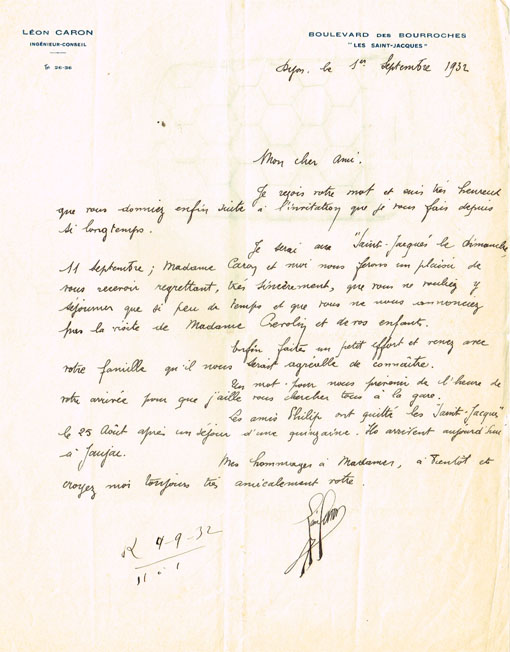 LÉON CARON
INGÉNIEUR-CONSEIL
Tél. 26-26
BOULEVARD DES BOURROCHES
"LES SAINT-JACQUES"
Dijon. le 1er Septembre 1932
Mon cher Ami.
Je reçois votre mot et suis très heureux
que vous donniez enfin suite à l'invitation que je vous fais depuis
si longtemps.
Je serai aux "Saint-Jacques le dimanche
11 septembre ; Madame Caron et moi nous ferons un plaisir de
vous recevoir regrettant, très sincèrement, que vous ne vouliez y
séjourner que si peu de temps et que vous ne nous annonciez
pas la visite de Madame et de vos enfants.
Enfin faites un petit effort et venez avec
votre famille qu'il nous serait agréable de connaître.
Un mot pour nous prévenir de l'heure de
votre arrivée pour que j'aille vous chercher tous à la gare.
Les amis Philip ont quitté les Saint-Jacques
le 25 Août après un séjour d'une quinzaine. Ils arrivent aujourd'hui
à Jaujac.
Mes hommages à Madames, à bientôt et
croyez moi toujours très amicalement votre.
Léon Caron
R 4-9-32